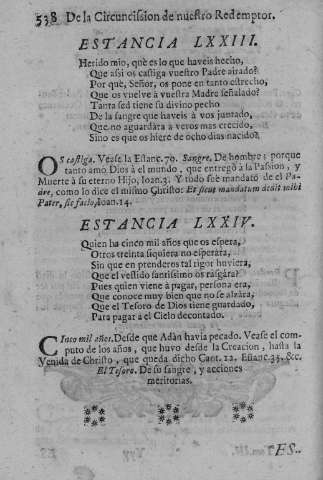 538 De la Circuncission de nuestro Redemptor.
ESTANCIA LXXIII.
Herido mio, què es lo que haveis hecho,
Que assi os castiga vuestro Padre airado?
Por què, Señor, os pone en tanto estrecho,
Que os vuelve à vuestra Madre señalado?
Tanta sed tiene su divino pecho
De la sangre que haveis à vos juntado,
Que no aguardàra à veros mas crecido,
Sino es que os hiere de ocho dias nacido?
OS castiga. Vease la Estanc. 70. Sangre. De hombre: porque
tanto amo Dios à el mundo, que entregò à la Passion, y
Muerte à su eterno Hijo, Ioan. 3. Y todo fue mandato de el Pa-
dre, como lo dice el mismo Christo: Et sicut mandatum dedit mihi
Pater, sic facio, Ioan. 14.
ESTANCIA LXXIV.
Quien ha cinco mil años que os espera,
Otros treinta siquiera no esperàra,
Sin que en prenderos tal rigor huviera,
Que el vestido santissimo os rasgàra?
Pues quien viene à pagar, persona era,
Que conoce muy bien que no se alzàra,
Que el Tesoro de Dios tiene guardado,
Para pagar à el Cielo decontado.
CInco mil años. Desde que Adàn havia pecado. Vease el com-
puto de los años, que huvo desde la Creacion, hasta la
Venida de Christo, que queda dicho Cant. 12. Estanc. 35. &c.
El Tesoro. De su sangre, y acciones
meritorias.
ES-